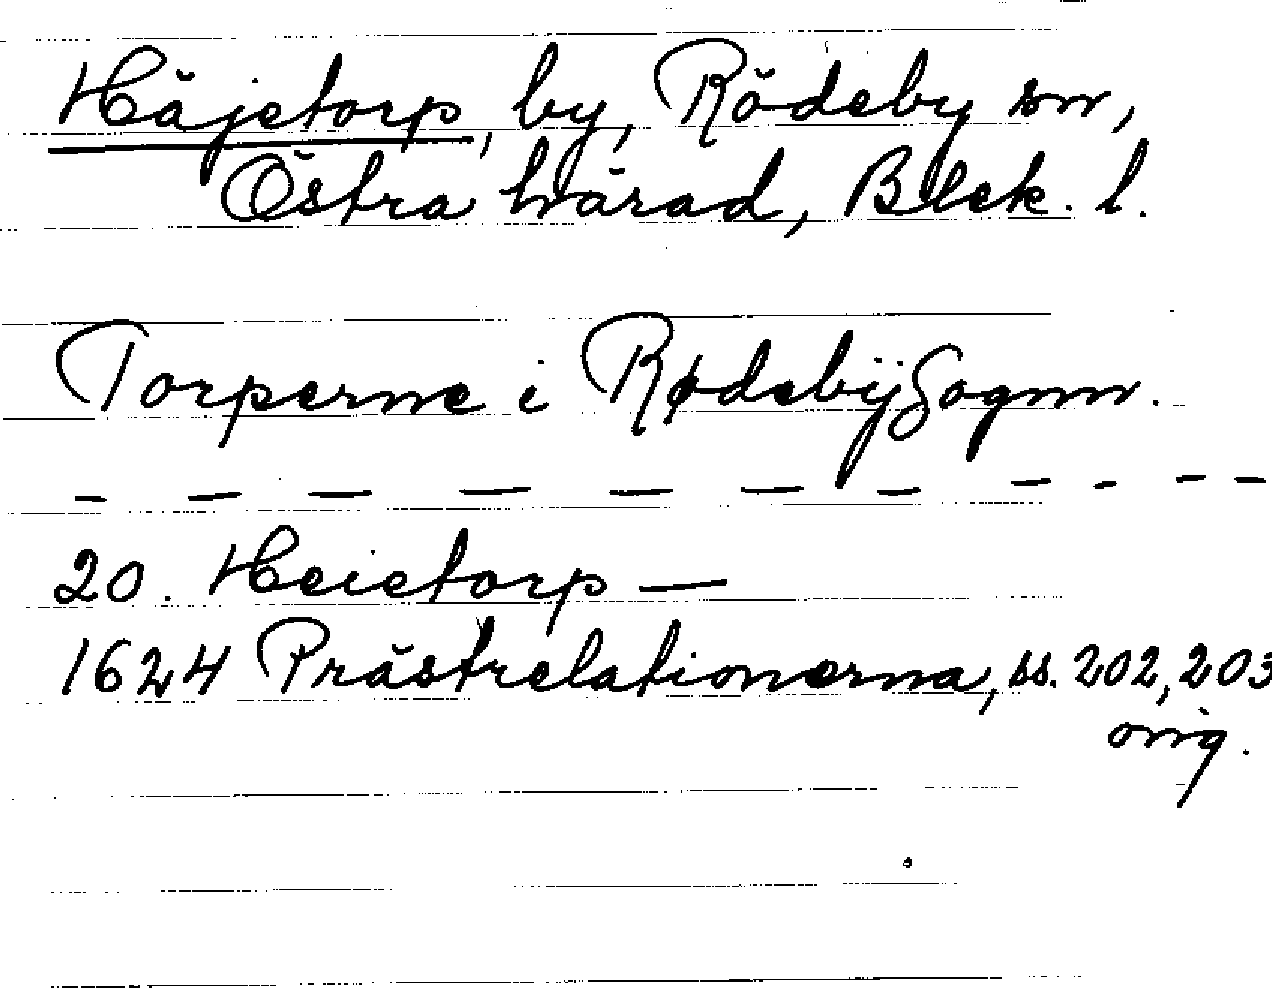 Häjetorp, by, Rödeby sn,
Östra härad, Blek. l.
Torperne i RødebÿSognn.
— — — — — — — — - - —
20. Heietorp —
1624 Prästrelationerna, ss. 202, 203
orig.